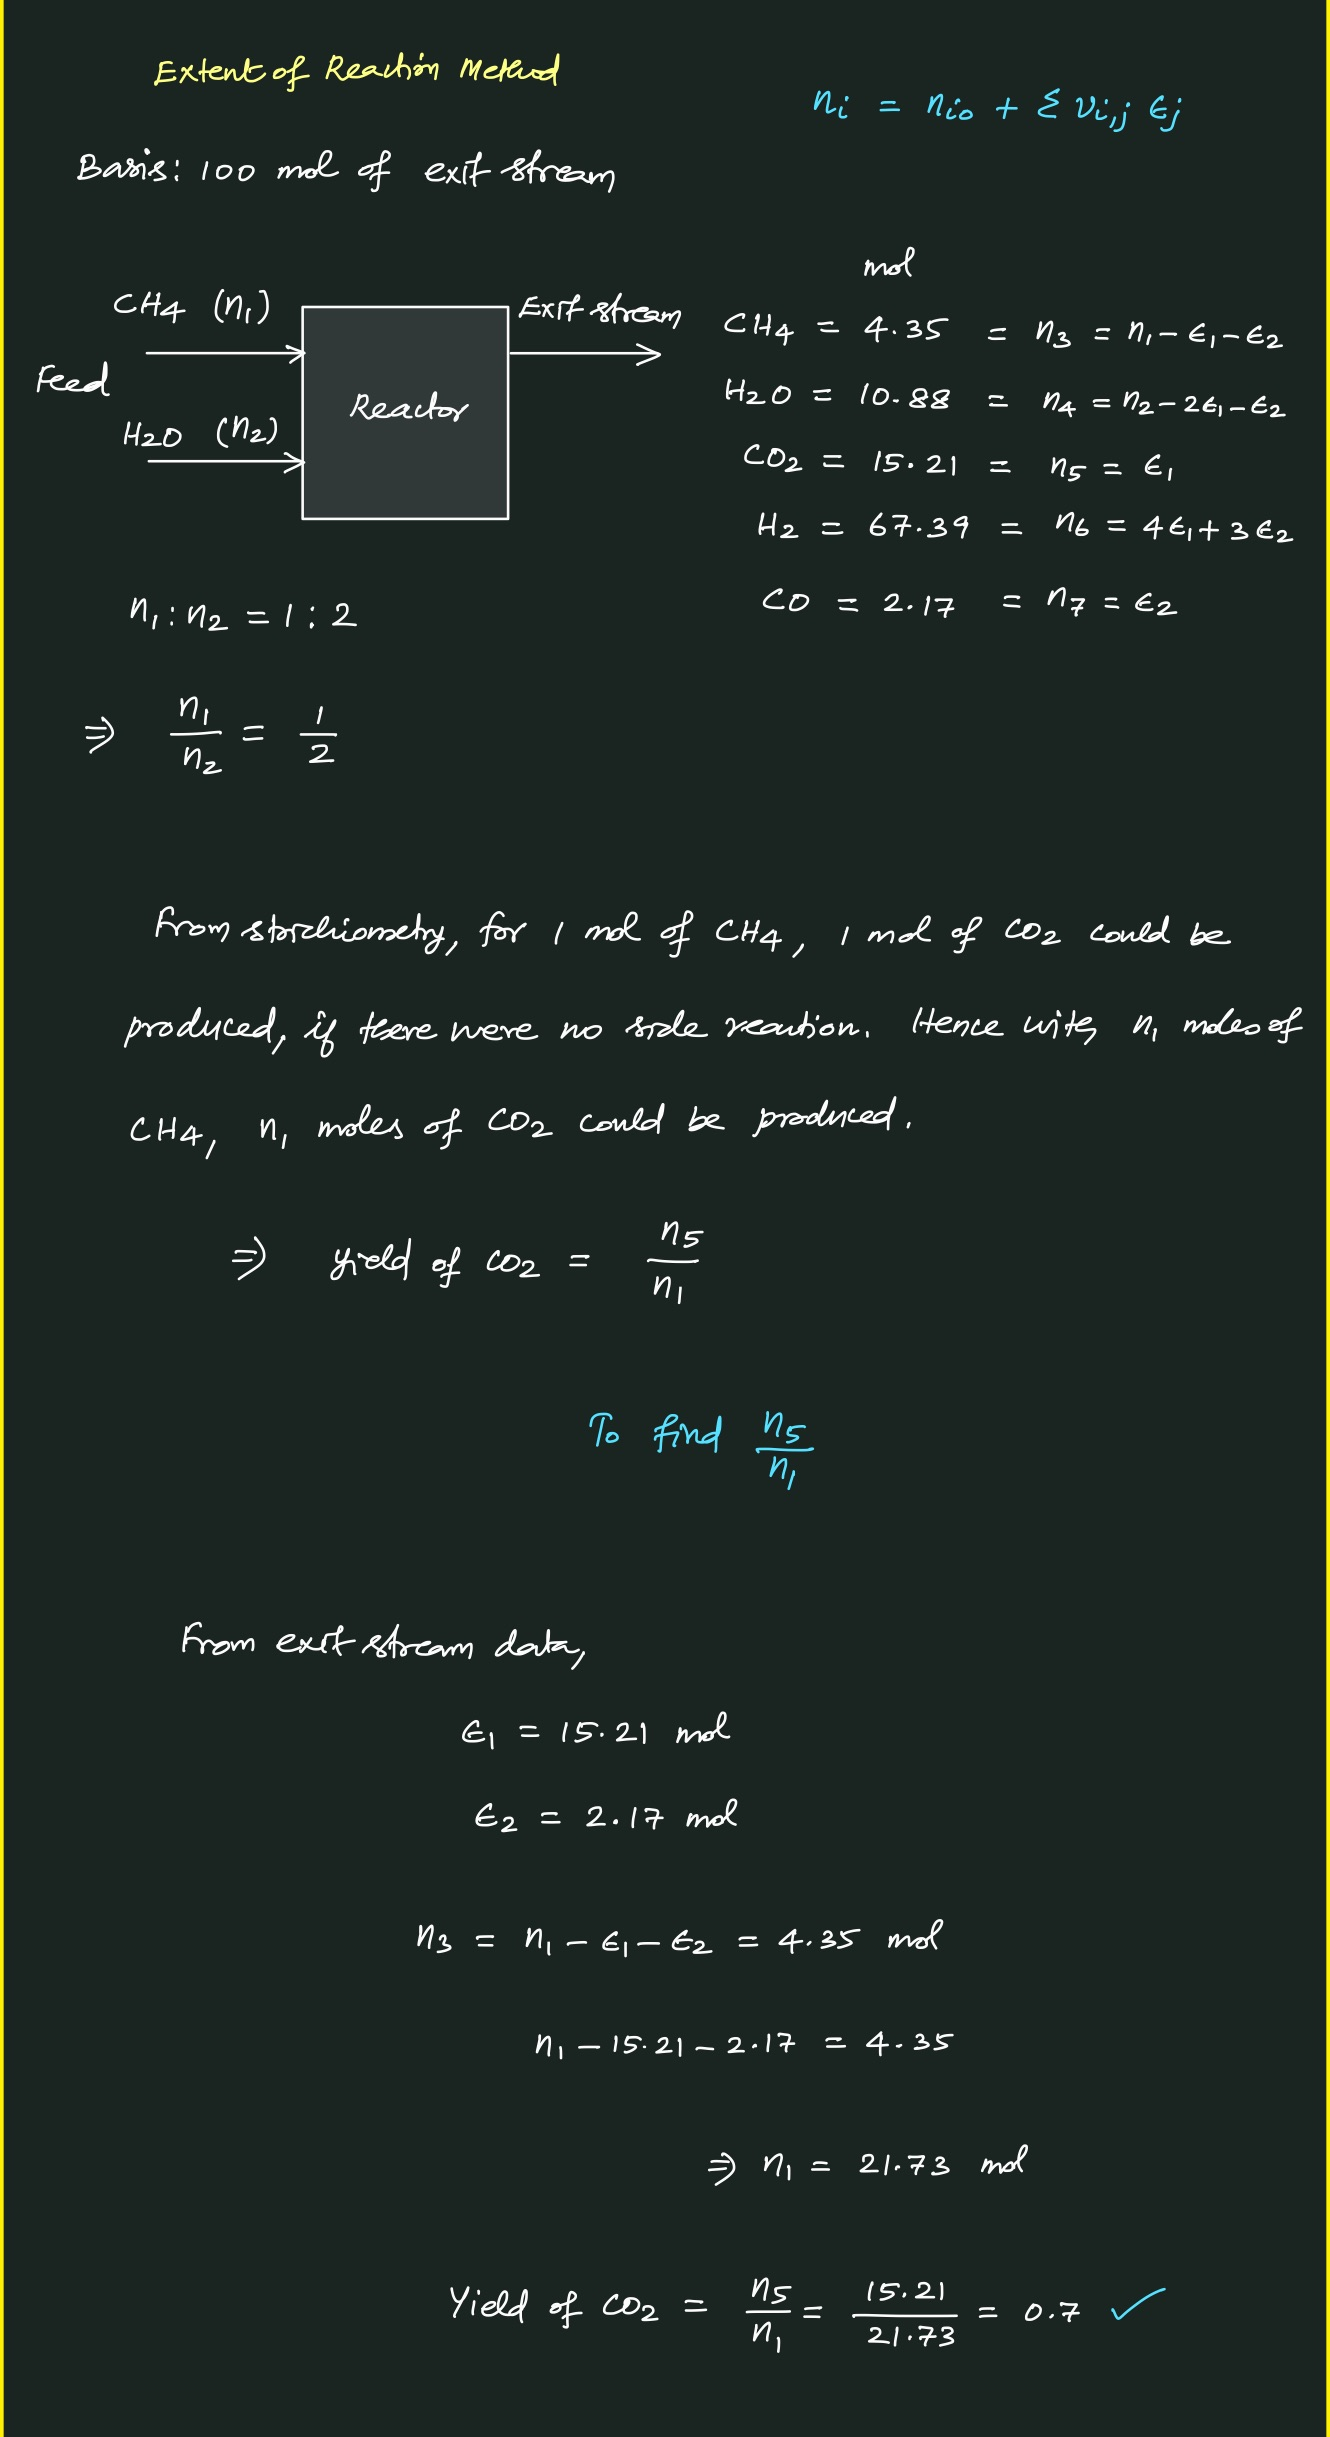 Extent of Reaction Method
ni = nio + Σ νi,j ϵj
Basis: 100 mol of exit stream
mol
CH4 (n1)
Exit stream
Feed
Reactor
H2O (n2)
CH4 = 4.35 = n3 = n1 - ϵ1 - ϵ2
H2O = 10.88 = n4 = n2 - 2ϵ1 - ϵ2
CO2 = 15.21 = n5 = ϵ1
H2 = 67.39 = n6 = 4ϵ1 + 3ϵ2
CO = 2.17 = n7 = ϵ2
n1 : n2 = 1 : 2
⇒ n1/n2 = 1/2
From stoichiometry, for 1 mol of CH4, 1 mol of CO2 could be
produced, if there were no side reaction. Hence with n1 moles of
CH4, n1 moles of CO2 could be produced.
⇒ yield of CO2 = n5/n1
To find n5/n1
From exit stream data,
ϵ1 = 15.21 mol
ϵ2 = 2.17 mol
n3 = n1 - ϵ1 - ϵ2 = 4.35 mol
n1 - 15.21 - 2.17 = 4.35
⇒ n1 = 21.73 mol
Yield of CO2 = n5/n1 = 15.21/21.73 = 0.7 ✓